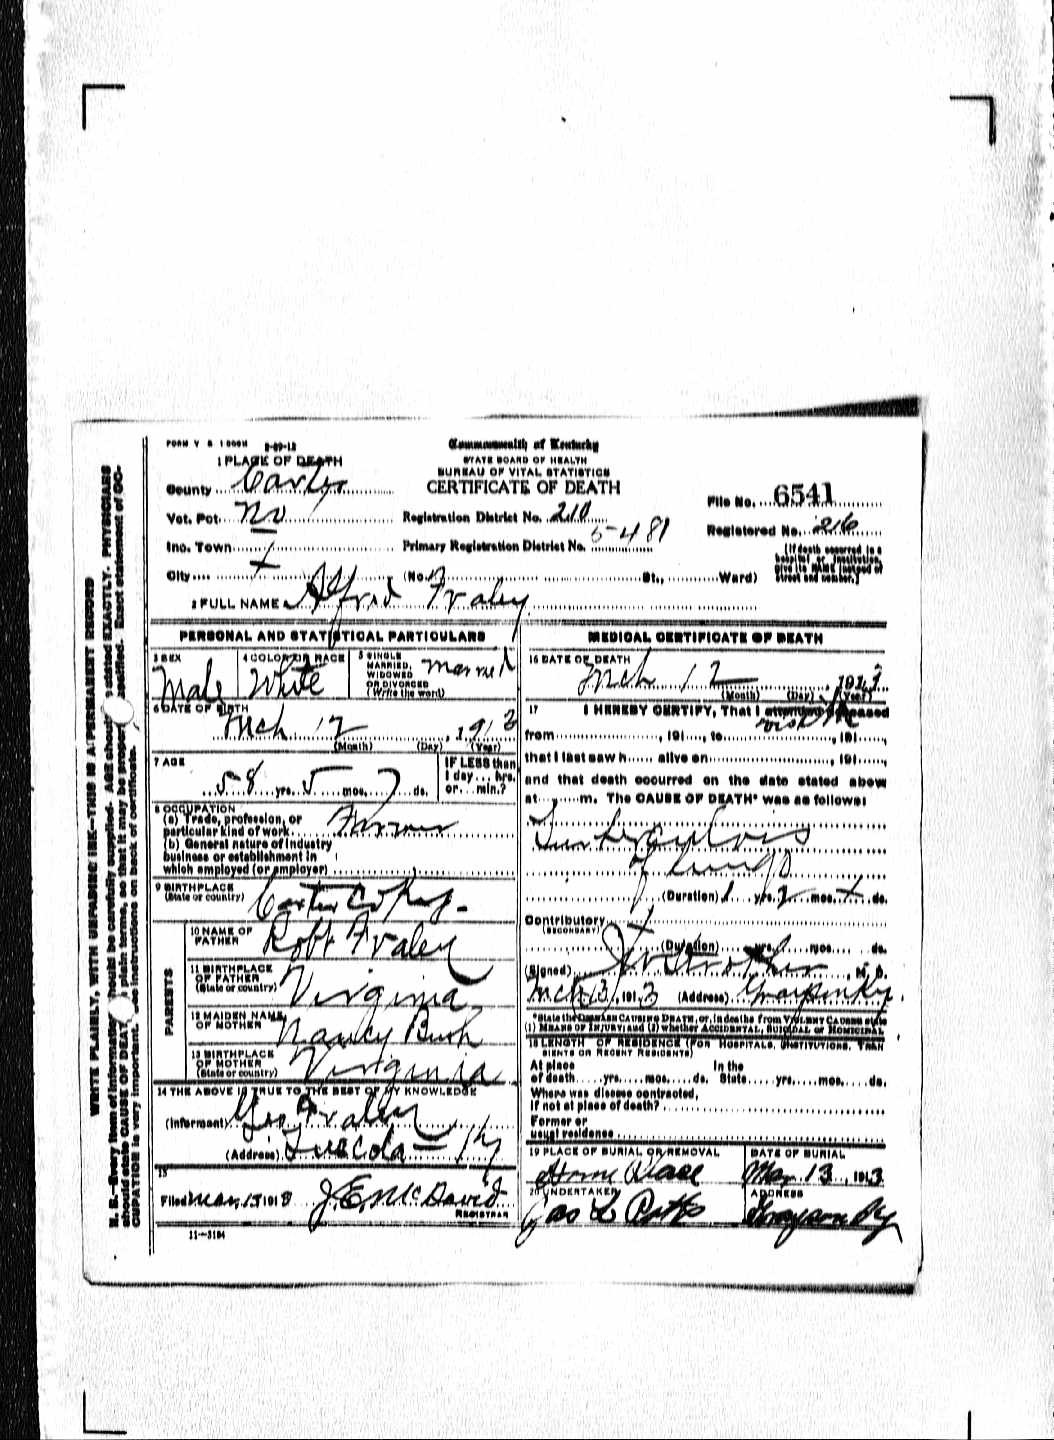 FORM V S 1 500M 8-09-12
Commonwealth of Kentucky
STATE BOARD OF HEALTH
BUREAU OF VITAL STATISTICS
CERTIFICATE OF DEATH
1 PLACE OF DEATH
County Carter
Vot. Pct. No
Inc. Town
City
Registration District No. 210
Primary Registration District No. 5481
File No. 6541
Registered No. 216
(If death occurred in a hospital or institution, give its NAME instead of street and number.)
(No. St., Ward)
2 FULL NAME Alfred Fraley
PERSONAL AND STATISTICAL PARTICULARS
3 SEX Male
4 COLOR OR RACE White
5 SINGLE MARRIED, WIDOWED OR DIVORCED (Write the word) married
6 DATE OF BIRTH Mch 12, 1913
(Month) (Day) (Year)
7 AGE
58 yrs. 5 mos. 7 ds.
IF LESS than 1 day ... hrs. or ... min.?
8 OCCUPATION
(a) Trade, profession, or particular kind of work Farmer
(b) General nature of industry business or establishment in which employed (or employer)
9 BIRTHPLACE (State or country) Carter Co Ky.
PARENTS
10 NAME OF FATHER Robt Fraley
11 BIRTHPLACE OF FATHER (State or country) Virginia
12 MAIDEN NAME OF MOTHER Nancy Bush
13 BIRTHPLACE OF MOTHER (State or country) Virginia
14 THE ABOVE IS TRUE TO THE BEST OF MY KNOWLEDGE
(Informant) Geo Fraley
(Address) Ky
15
Filed Mar. 15 1913 J.E. McDavid
REGISTRAR
11-3184
MEDICAL CERTIFICATE OF DEATH
16 DATE OF DEATH
Mch 12, 1913
(Month) (Day) (Year)
17 I HEREBY CERTIFY, That I attended deceased
from , 191 , to , 191 ,
that I last saw h alive on , 191 ,
and that death occurred on the date stated above
at m. The CAUSE OF DEATH* was as follows:
Tuberculois
of lungs
(Duration) 1 yrs. 2 mos. ds.
Contributory
(SECONDARY)
(Duration) yrs. mos. ds.
(Signed) , M. D.
Mch 13, 1913 (Address)
*State the DISEASE CAUSING DEATH, or, in deaths from VIOLENT CAUSES state (1) MEANS OF INJURY; and (2) whether ACCIDENTAL, SUICIDAL or HOMICIDAL
18 LENGTH OF RESIDENCE (FOR HOSPITALS, INSTITUTIONS, TRANSIENTS OR RECENT RESIDENTS)
At place of death yrs. mos. ds. In the State yrs. mos. ds.
Where was disease contracted, if not at place of death?
Former or usual residence
19 PLACE OF BURIAL OR REMOVAL Home Place
DATE OF BURIAL Mar 13, 1913
20 UNDERTAKER Jas L
ADDRESS Grayson Ky
WRITE PLAINLY, WITH UNFADING INK—THIS IS A PERMANENT RECORD
N. B.—Every item of information should be carefully supplied. AGE should be stated EXACTLY. PHYSICIANS
should state CAUSE OF DEATH in plain terms, so that it may be properly classified. Exact statement of OC-
CUPATION is very important. See instructions on back of certificate.